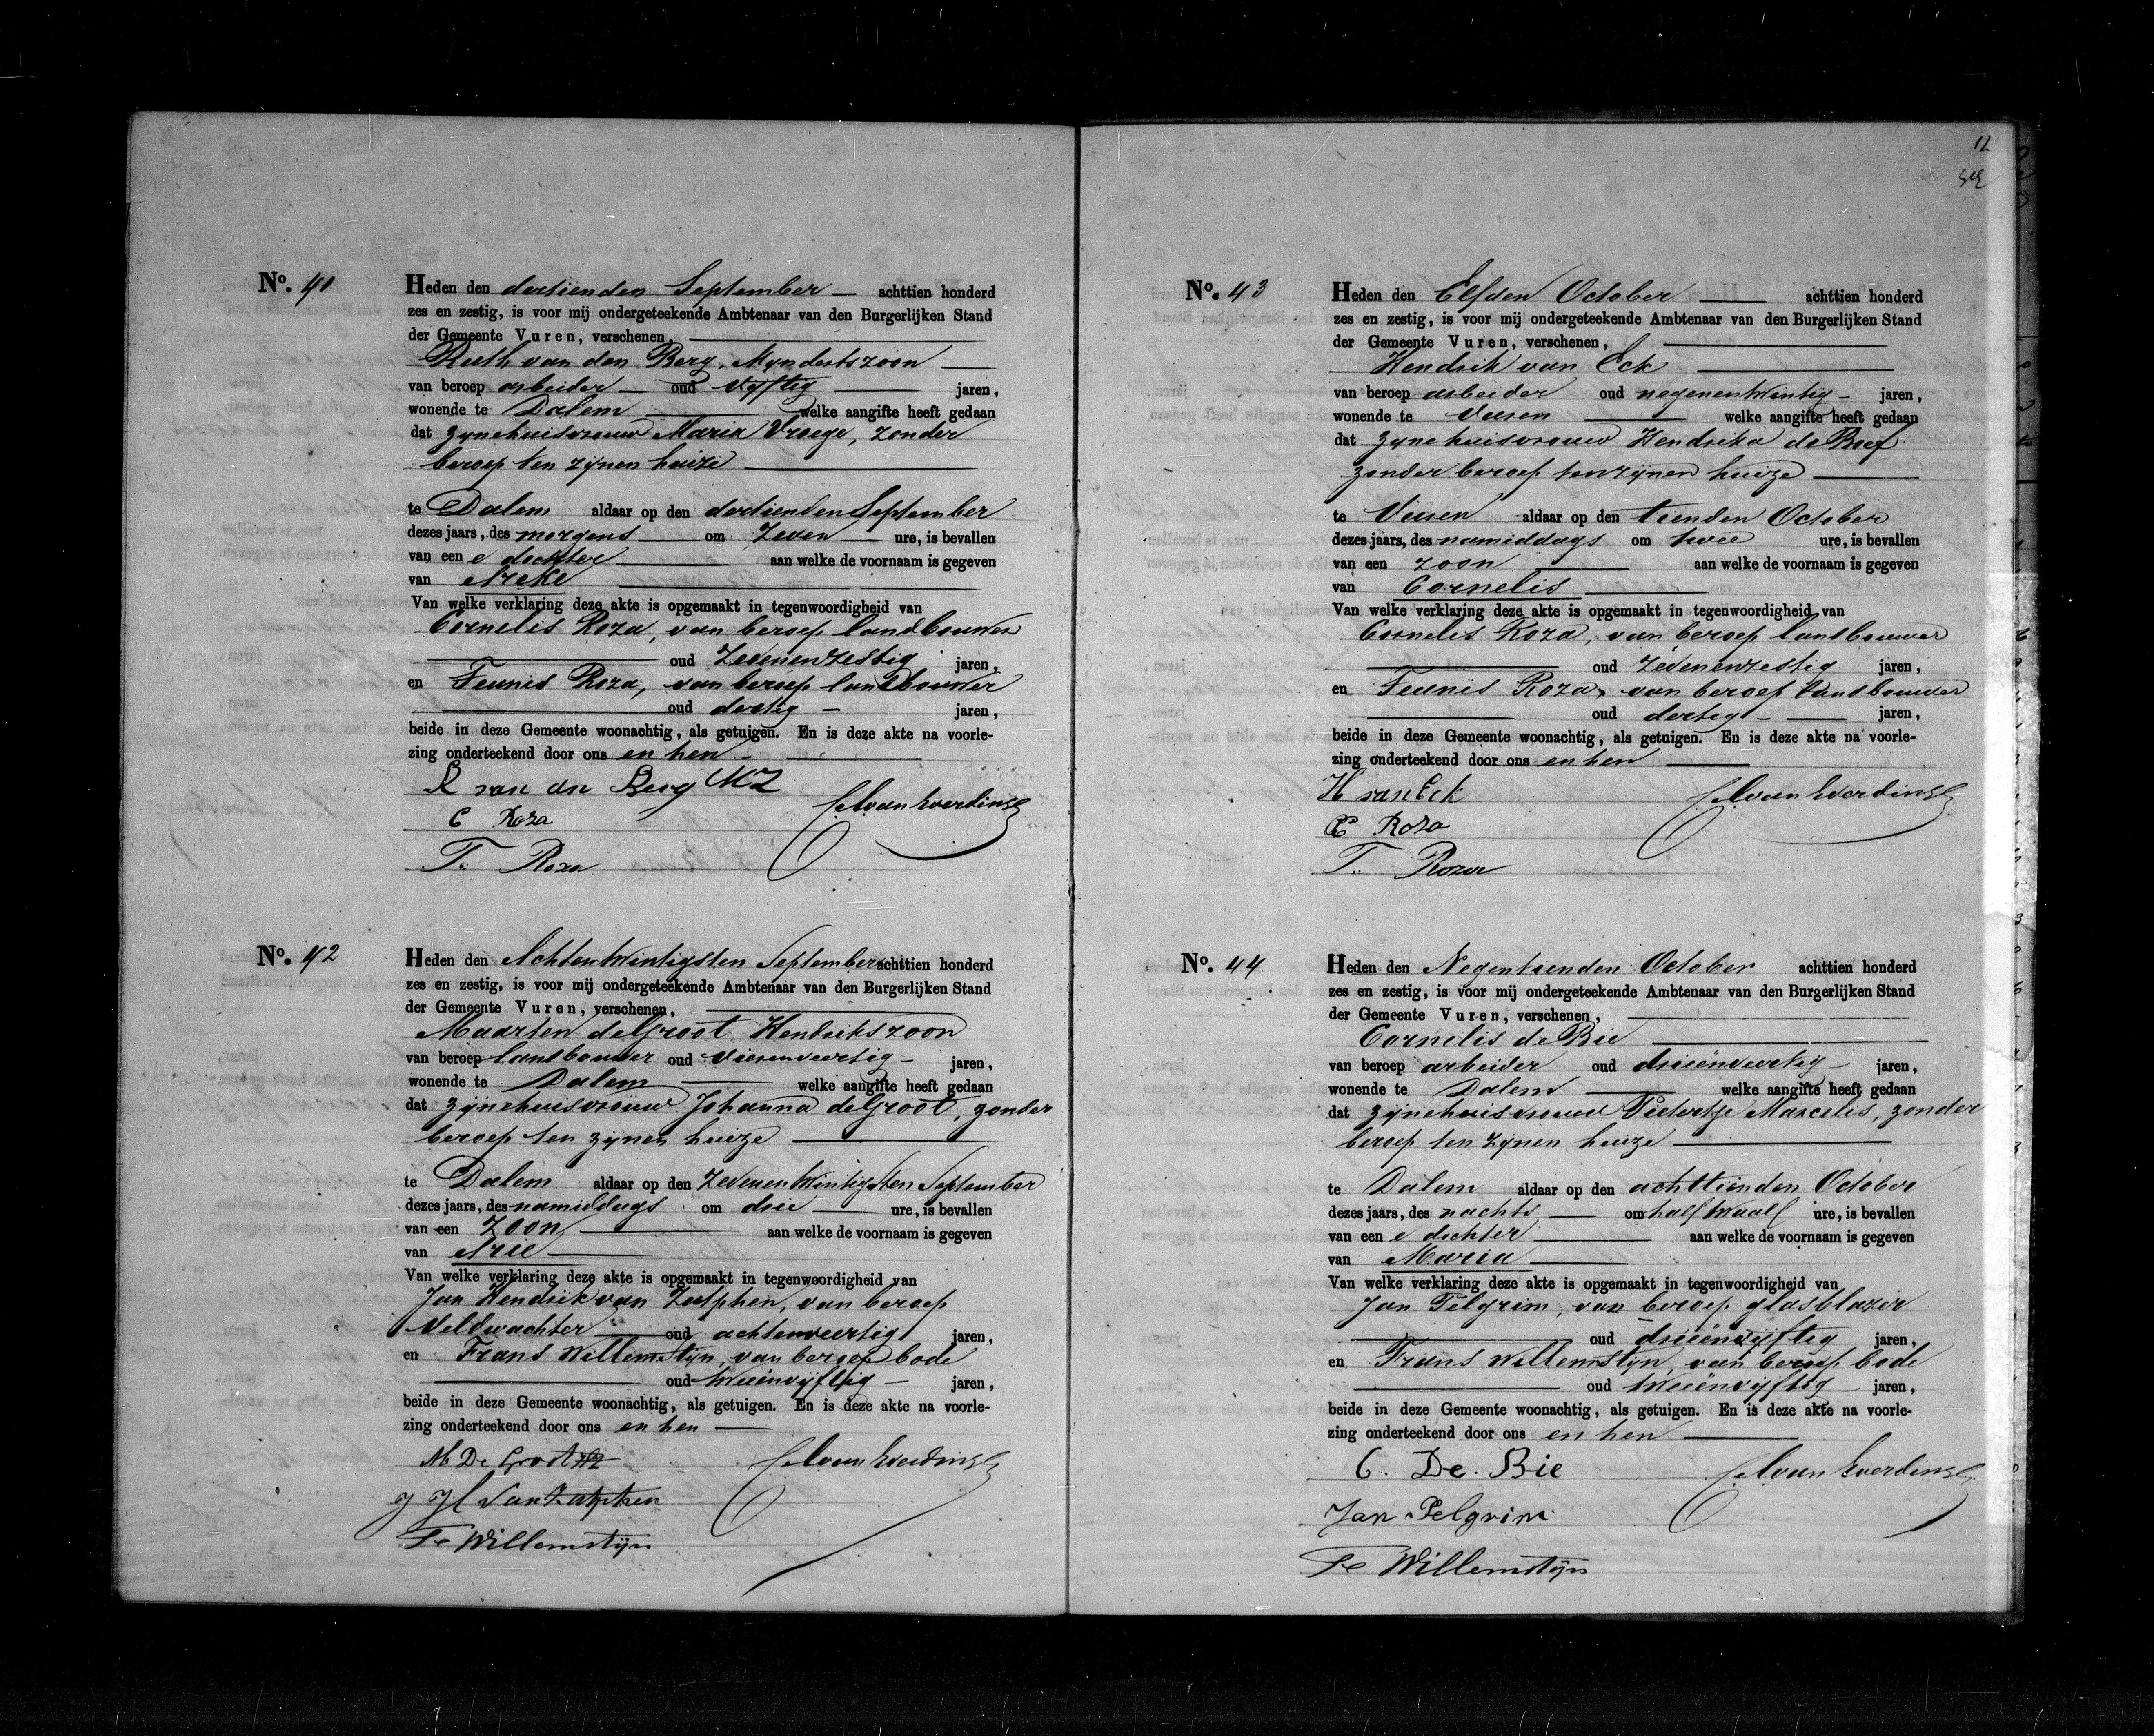 No. 41
Heden den dertienden September achttien honderd
zes en zestig, is voor mij ondergeteekende Ambtenaar van den Burgerlijken Stand
der Gemeente Vuren, verschenen,
van den Berg, Myndertszoon
van beroep arbeider oud vyftig jaren,
wonende te Dalem welke aangifte heeft gedaan
dat zynehuisvrouw Maria Vroege, zonder
beroep ten zijnen huize
te Dalem aldaar op den dertienden September
dezes jaars, des morgens om Zeven ure, is bevallen
van een e dochter aan welke de voornaam is gegeven
van Areke
Van welke verklaring deze akte is opgemaakt in tegenwoordigheid van
Cornelis Roza, van beroep landbouwer
oud Zevenenzestig jaren,
en Teunis Roza, van beroep landbouwer
oud dertig jaren,
beide in deze Gemeente woonachtig, als getuigen. En is deze akte na voorle-
zing onderteekend door ons en hen
R van den Berg MZ
C Roza
T. Roza
No. 42
Heden den Achtentwintigsten September achttien honderd
zes en zestig, is voor mij ondergeteekende Ambtenaar van den Burgerlijken Stand
der Gemeente Vuren, verschenen,
Maarten de Groot Hendrikszoon
van beroep landbouwer oud vierenveertig jaren,
wonende te Dalem welke aangifte heeft gedaan
dat zynehuisvrouw Johanna de Groot, zonder
beroep ten zijnen huize
te Dalem aldaar op den Zevenentwintigsten September
dezes jaars, des namiddags om drie ure, is bevallen
van een Zoon aan welke de voornaam is gegeven
van Arie
Van welke verklaring deze akte is opgemaakt in tegenwoordigheid van
Jan Hendrik van Zutphen, van beroep
Veldwachter oud achtenveertig jaren,
en Frans Willemstijn, van beroep bode
oud tweeënvijftig jaren,
beide in deze Gemeente woonachtig, als getuigen. En is deze akte na voorle-
zing onderteekend door ons en hen
M De Groot HZ
J H Van Zutphen
Fs Willemstijn
12
No. 43
Heden den Elfden October achttien honderd
zes en zestig, is voor mij ondergeteekende Ambtenaar van den Burgerlijken Stand
der Gemeente Vuren, verschenen,
Hendrik van Eck
van beroep arbeider oud negenentwintig jaren,
wonende te Vuren welke aangifte heeft gedaan
dat zynehuisvrouw Hendrika de Roef
zonder beroep ten zijnen huize
te Vuren aldaar op den tienden October
dezes jaars, des namiddags om twee ure, is bevallen
van een zoon aan welke de voornaam is gegeven
van Cornelis
Van welke verklaring deze akte is opgemaakt in tegenwoordigheid van
Cornelis Roza, van beroep landbouwer
oud Zevenenzestig jaren,
en Teunis Roza, van beroep landbouwer
oud dertig jaren,
beide in deze Gemeente woonachtig, als getuigen. En is deze akte na voorle-
zing onderteekend door ons en hen
H van Eck
C Roza
T. Roza
No. 44
Heden den Negentienden October achttien honderd
zes en zestig, is voor mij ondergeteekende Ambtenaar van den Burgerlijken Stand
der Gemeente Vuren, verschenen,
Cornelis de Bie
van beroep arbeider oud drieënveertig jaren,
wonende te Dalem welke aangifte heeft gedaan
dat zynehuisvrouw Pietertje Marcelis, zonder
beroep ten zijnen huize
te Dalem aldaar op den achttienden October
dezes jaars, des nachts om half twaalf ure, is bevallen
van een e dochter aan welke de voornaam is gegeven
van Maria
Van welke verklaring deze akte is opgemaakt in tegenwoordigheid van
Jan Pelgrim, van beroep glasblazer
oud drieënvijftig jaren,
en Frans Willemstijn, van beroep bode
oud tweeënvijftig jaren,
beide in deze Gemeente woonachtig, als getuigen. En is deze akte na voorle-
zing onderteekend door ons en hen
C. De. Bie
Jan Pelgrim
Fs Willemstijn